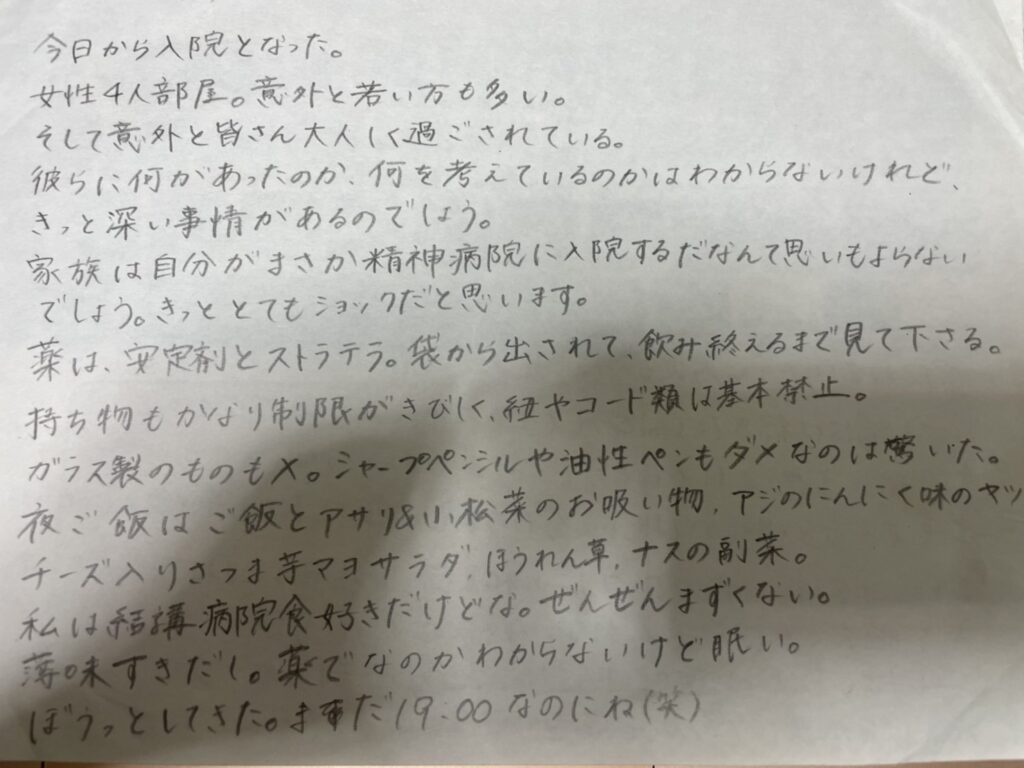 今日から入院となった。
女性4人部屋。意外と若い方も多い。
そして意外と皆さん大人しく過ごされている。
彼らに何があったのか、何を考えているのかはわからないけれど、
きっと深い事情があるのでしょう。
家族は自分がまさか精神病院に入院するだなんて思いもよらない
でしょう。きっととてもショックだと思います。
薬は、安定剤とストラテラ。袋から出されて、飲み終えるまで見て下さる。
持ち物もかなり制限がきびしく、紐やコード類は基本禁止。
ガラス製のものも×。シャープペンシルや油性ペンもダメなのは驚いた。
夜ご飯はご飯とアサリ&小松菜のお吸い物、アジのにんにく味のヤツ
チーズ入りさつま芋マヨサラダ、ほうれん草、ナスの副菜。
私は結構病院食好きだけどな。ぜんぜんまずくない。
薄味すきだし。薬でなのかわからないけど眠い。
ぼうっとしてきた。まだ19:00なのにね(笑)